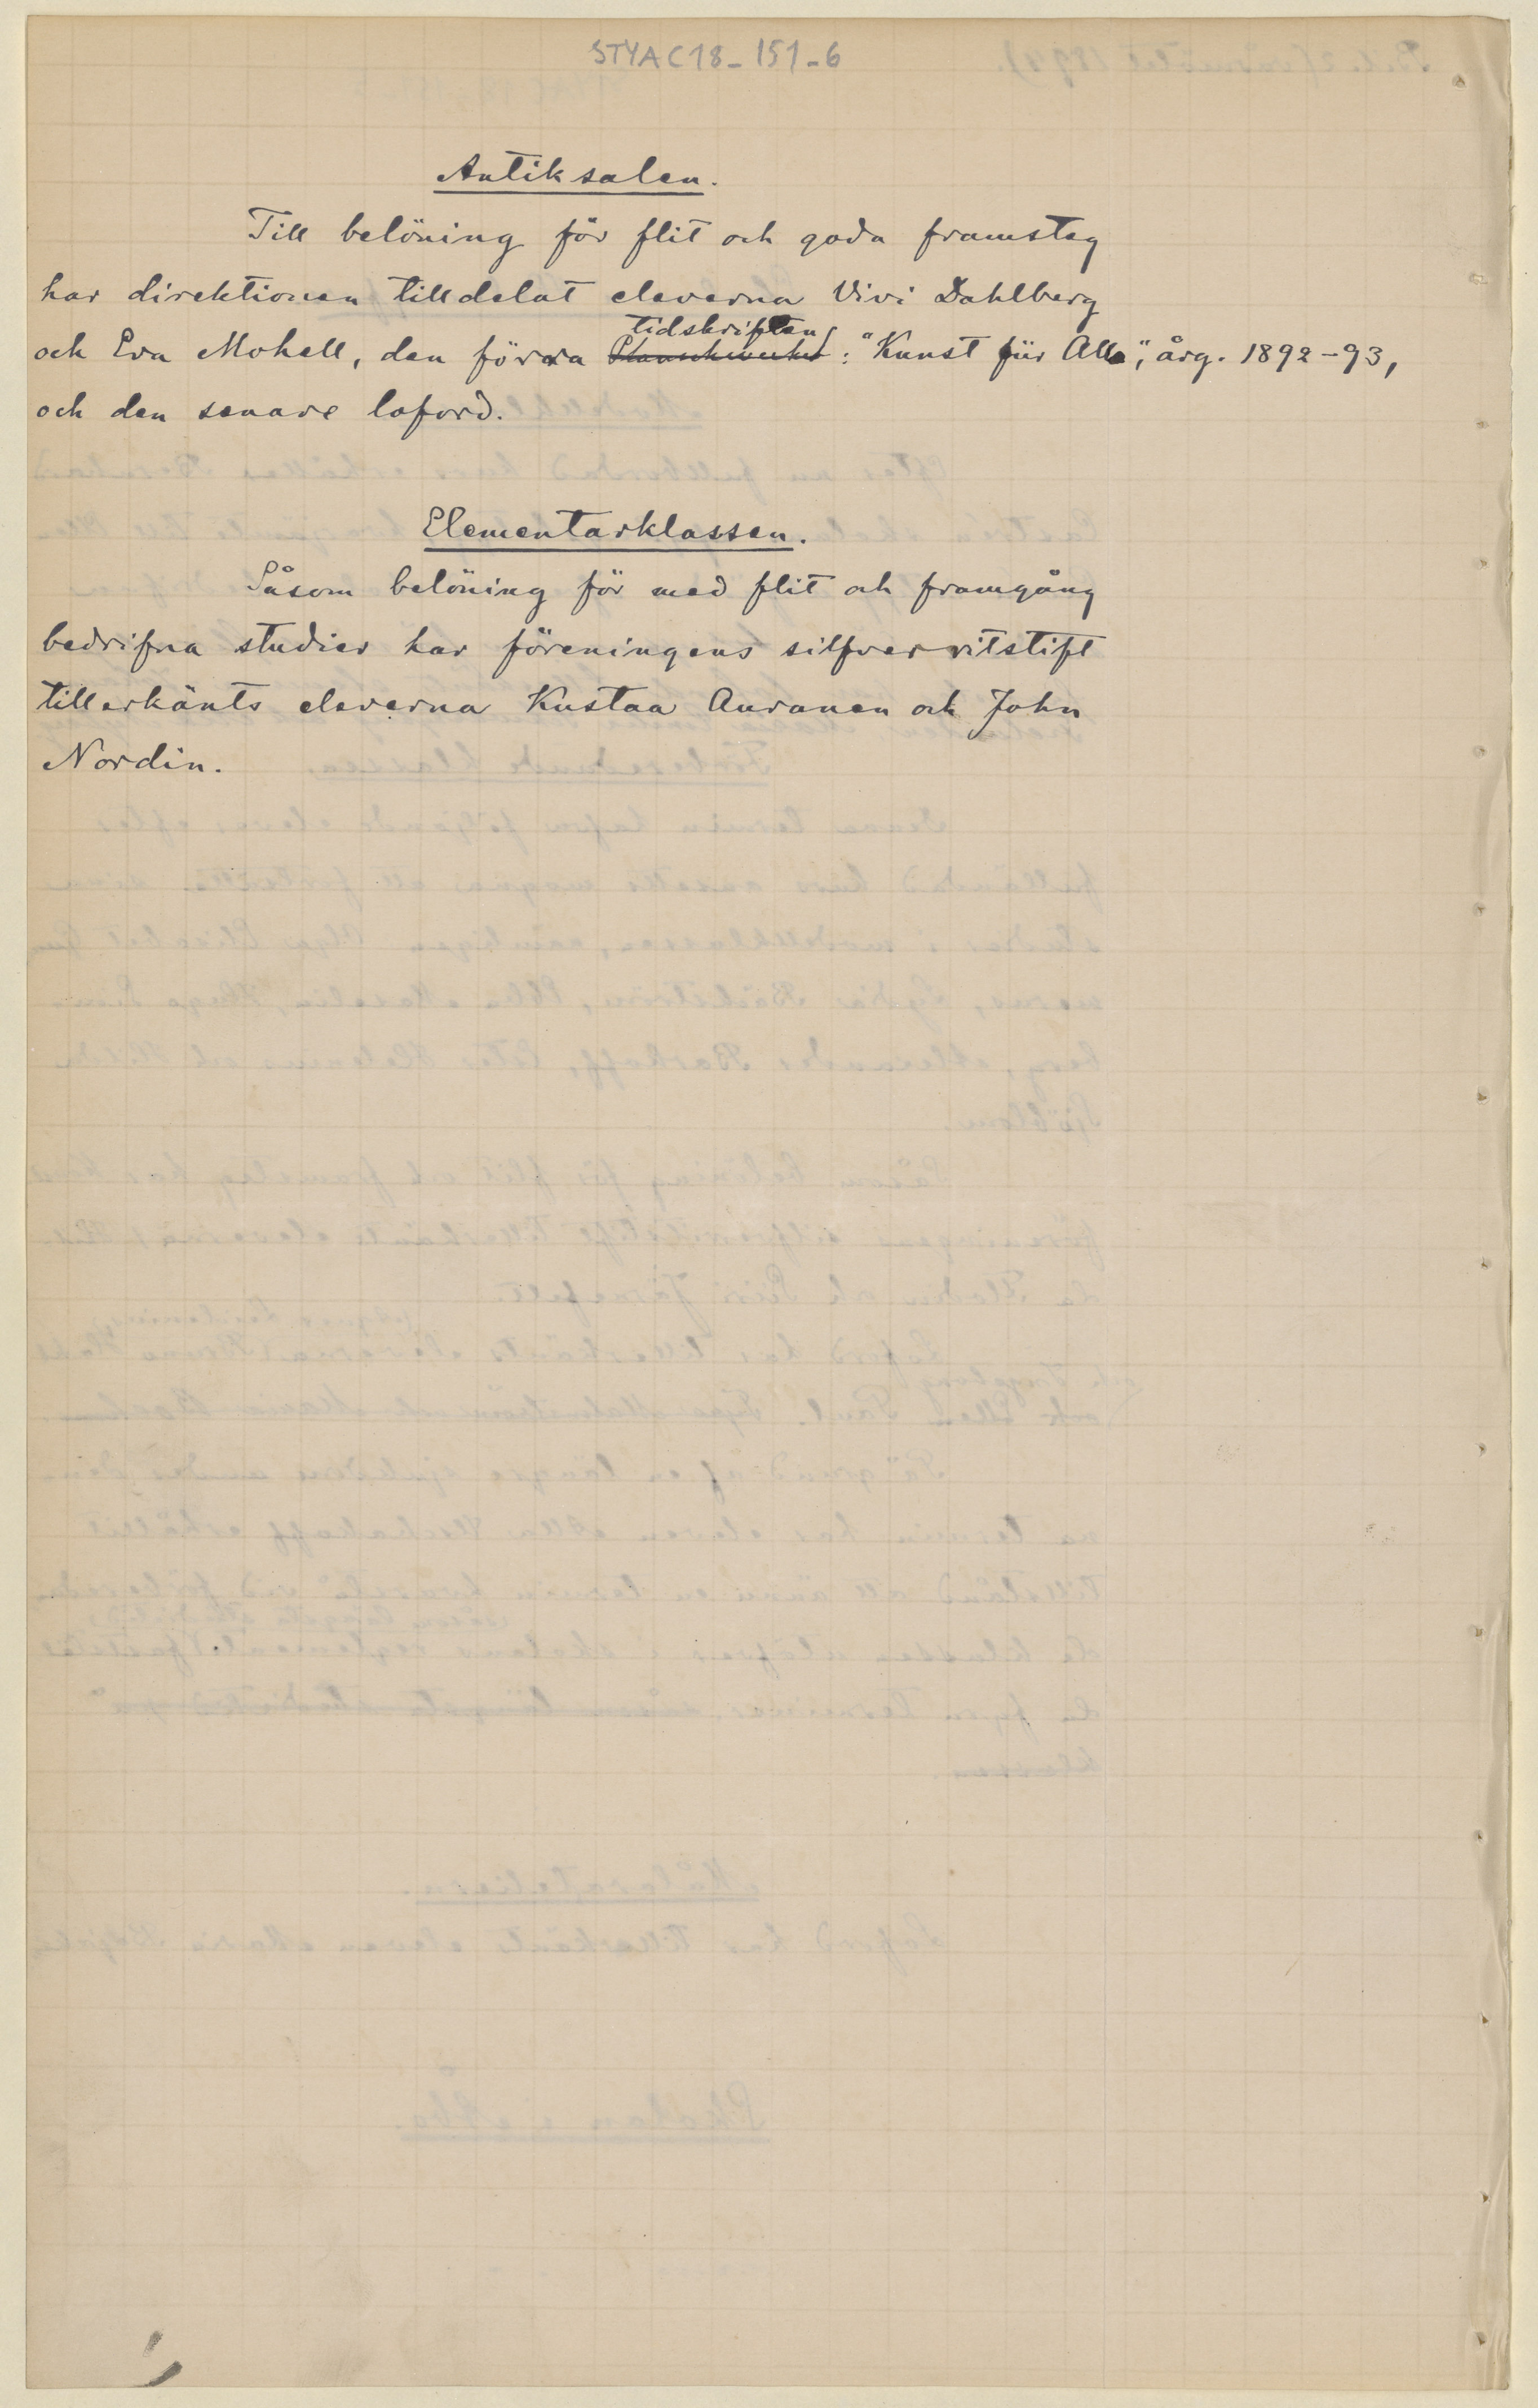 STYA C18-151-6
Antiksalen.
Till belöning för flit och goda framsteg
har direktionen tilldelat eleverna Vivi Dahlberg
tidskriften
och Eva Mohell, den förra Planschverket: "Kunst für Alle", årg. 1892-93,
och den senare loford.
Elementarklassen.
Såsom belöning för med flit och framgång
bedrifna studier har föreningens silfverritstift
tillerkänts eleverna Kustaa Auranen och John
Nordin.